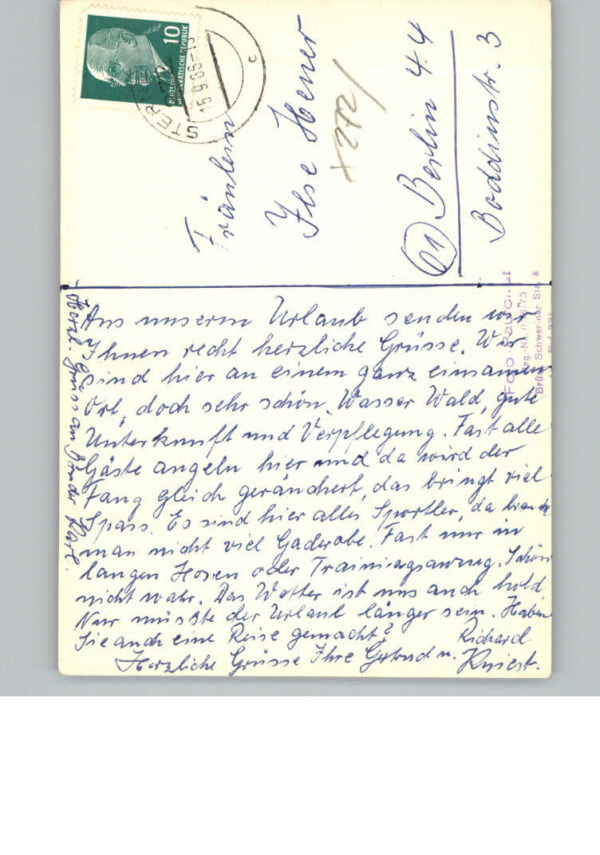 10
DEUTSCHE DEMOKRATISCHE REPUBLIK
STERN
15.9.66-13
c
Fräulein
Ilse Hener
x 272/
(01) Berlin 44
Boddinstr. 3
Foto
Schweriner Str. 4
Aus unserm Urlaub senden wir
Ihnen recht herzliche Grüsse. Wir
sind hier an einem ganz einsamen
Ort, doch sehr schön, Wasser Wald, gute
Unterkunft und Verpflegung. Fast alle
Gäste angeln hier und da wird der
Fang gleich geräuchert, das bringt viel
Spass. Es sind hier alles Sportler, da braucht
man nicht viel Gaderobe. Fast nur in
langen Hosen oder Trainingsanzug. Schön
nicht wahr. Das Wetter ist uns auch hold
Nur müsste der Urlaub länger sein. Haben
Sie auch eine Reise gemacht?
Herzliche Grüsse Ihre Gertrud u. Richard
Kniest.
Herzl. Gruss an Bruder Karl.